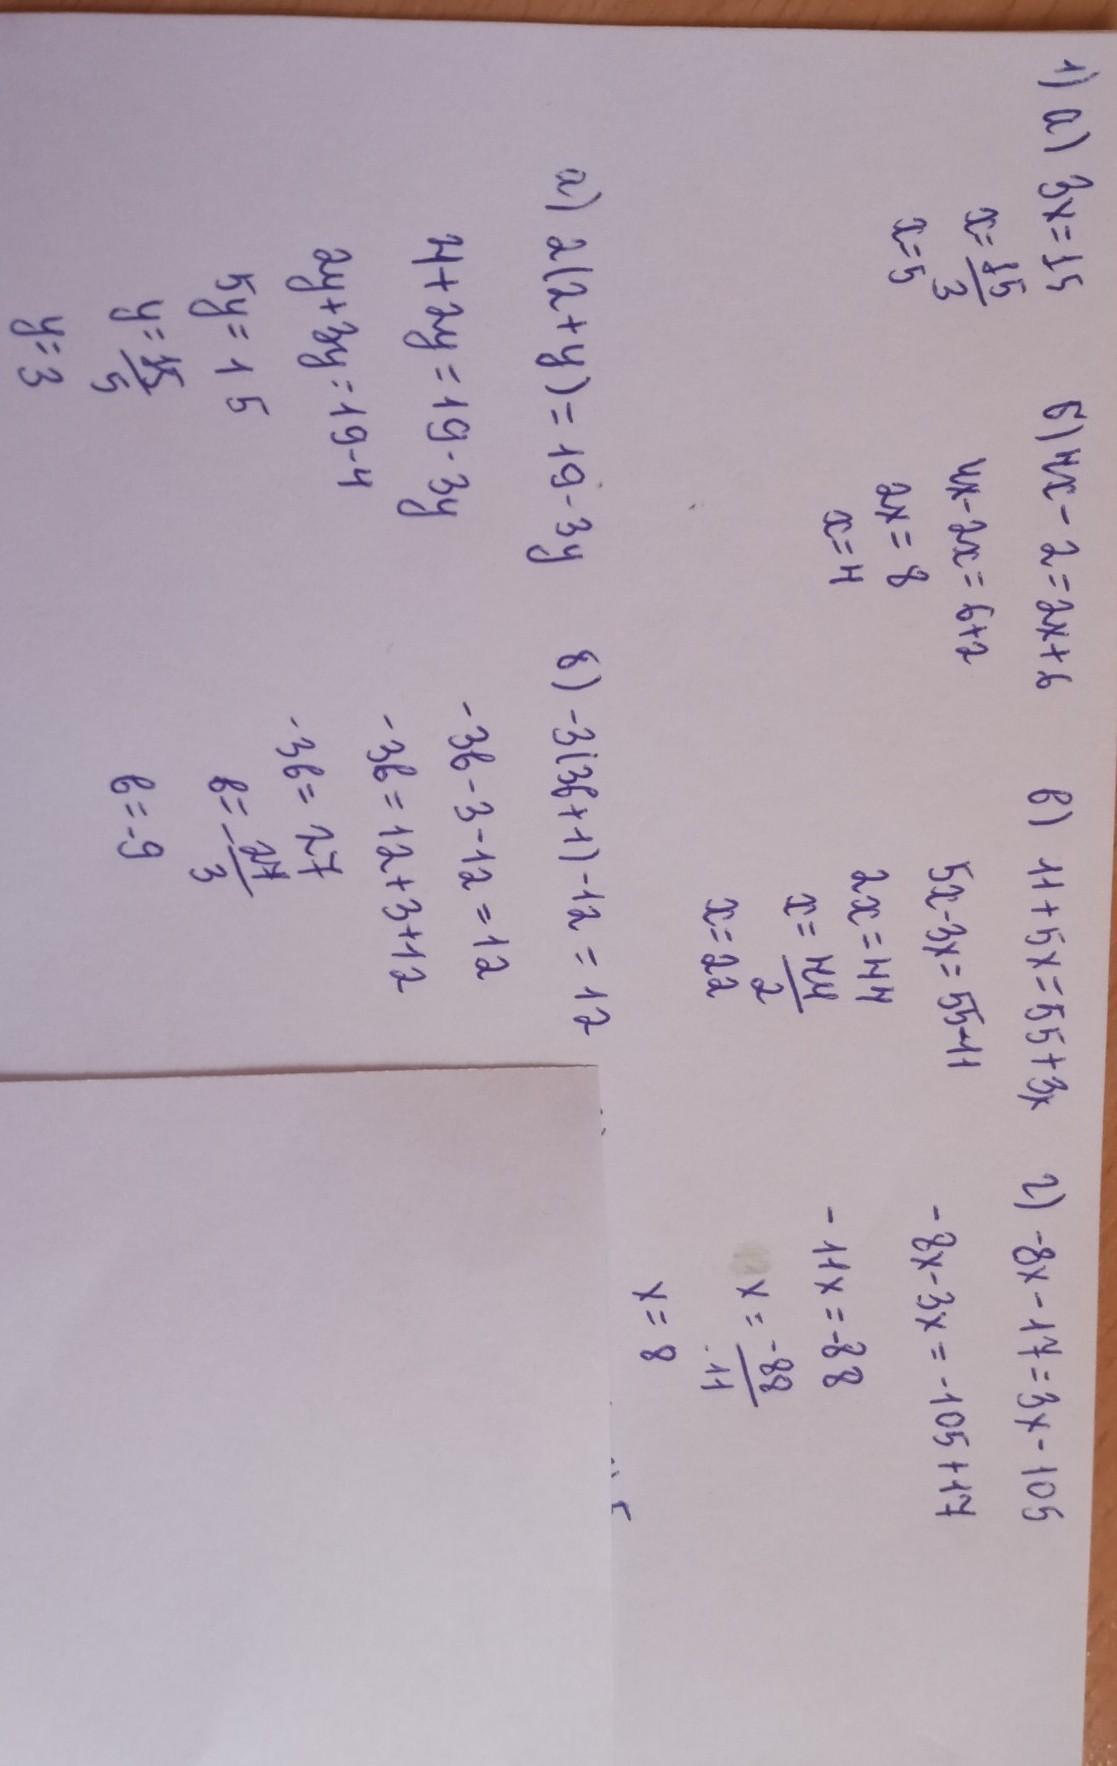 1) а) 3x=15
x=15/3
x=5
б) 4x-2=2x+6
4x-2x=6+2
2x=8
x=4
в) 11+5x=55+3x
5x-3x=55-11
2x=44
x=44/2
x=22
г) -8x-17=3x-105
-8x-3x=-105+17
-11x=-88
x=-88/-11
x=8
а) 2(2+y)=19-3y
4+2y=19-3y
2y+3y=19-4
5y=15
y=15/5
y=3
б) -3(3b+1)-12=12
-3b-3-12=12
-3b=12+3+12
-3b=27
b=-27/3
b=-9